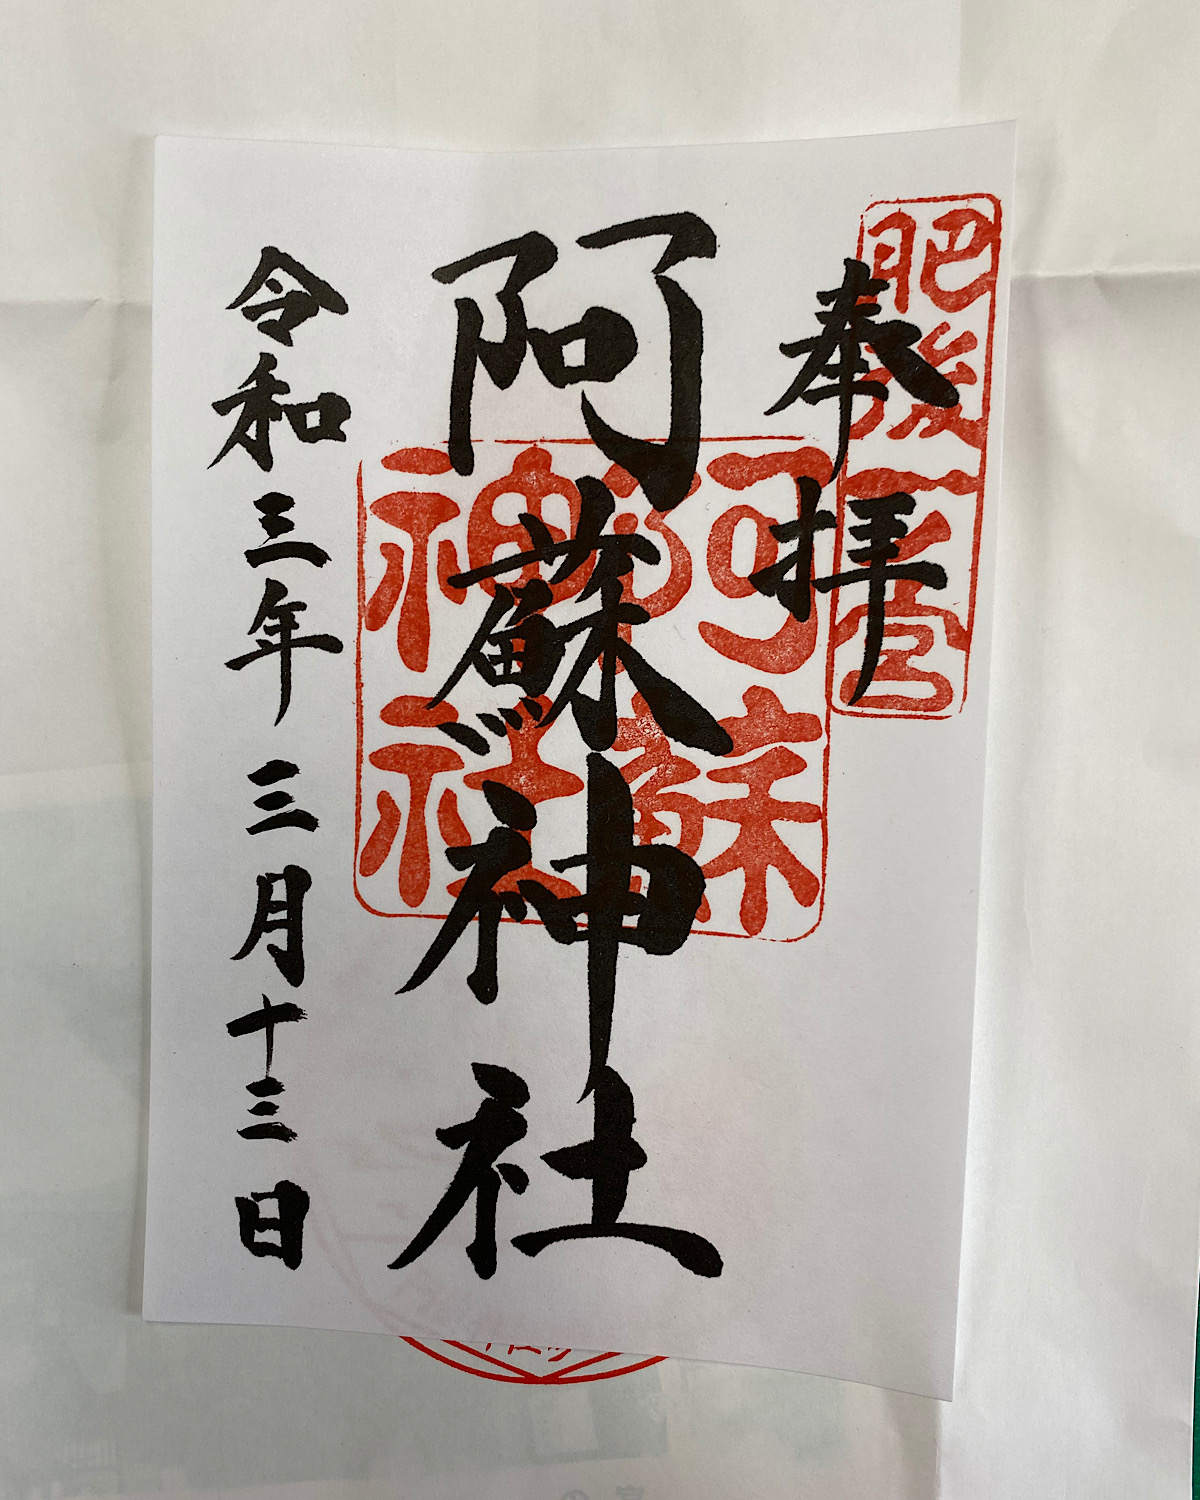 奉拝
肥後一之宮
阿蘇神社
阿蘇神社
令和三年三月十三日